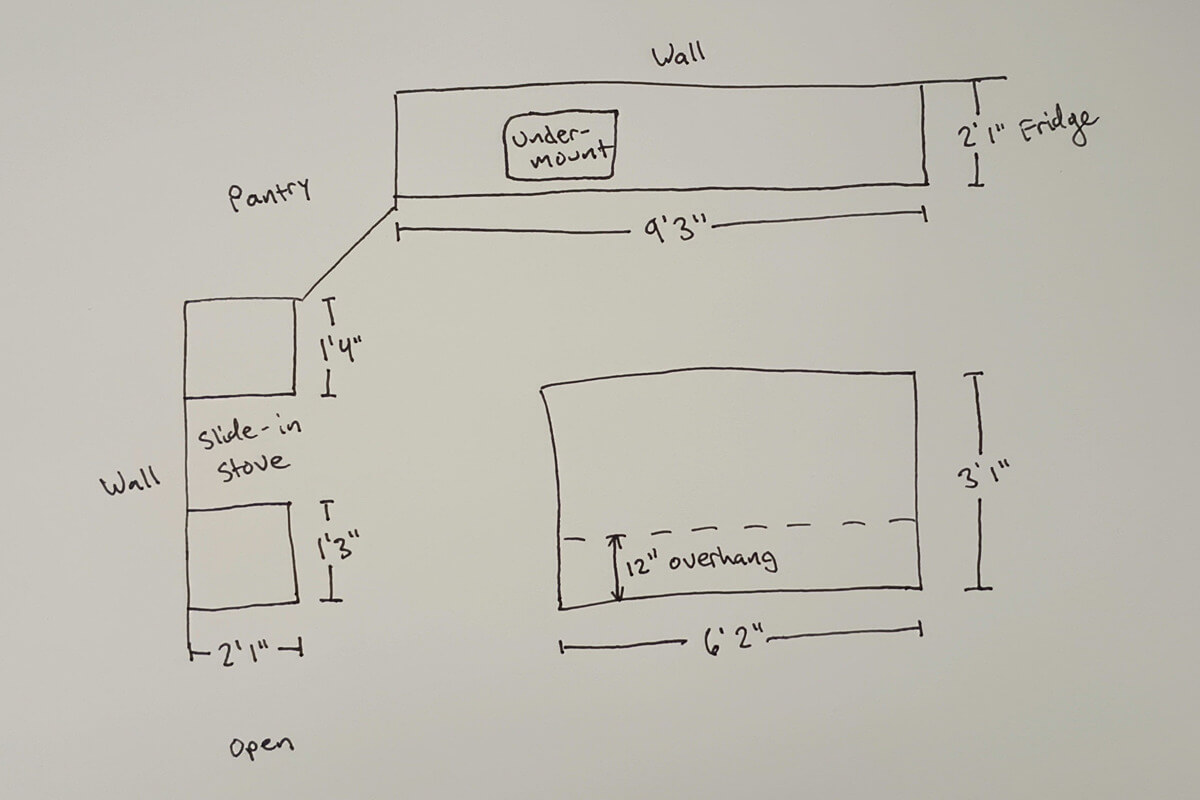 Wall
2'1" Fridge
Under-
mount
Pantry
9'3"
1'4"
Slide-in
Stove
Wall
3'1"
1'3"
12" overhang
6'2"
2'1"
Open